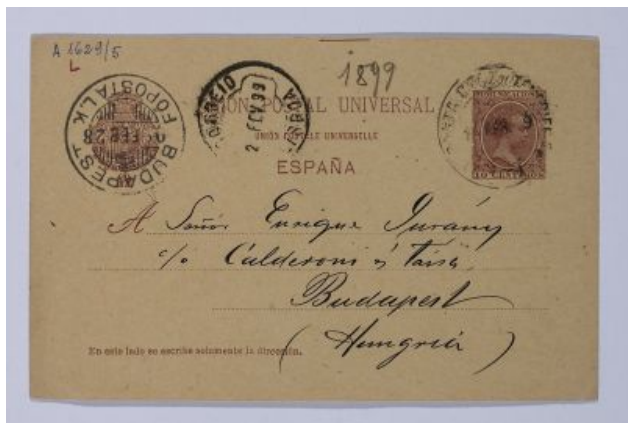 A 1629/5
L
1899
BUDAPEST FŐPOSTA L.K.
FEB 28
CORREIO
2 FEV 99
UNIÓN POSTAL UNIVERSAL
UNION POSTALE UNIVERSELLE
ESPAÑA
COMUNICACIONES
10 CENTIMOS
A Señor Enrique Jurány
c/o Calderoni és Társa
Budapest
(Hungria)
En este lado se escribe solamente la dirección.